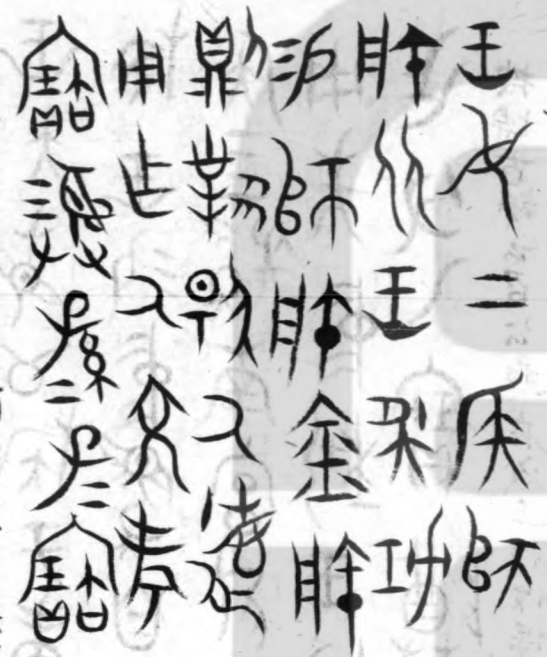 王女上侯師
艅从王夜功
易師艅金艅
則對揚氒德
用乍氒文考
寶彝孫=子=寶